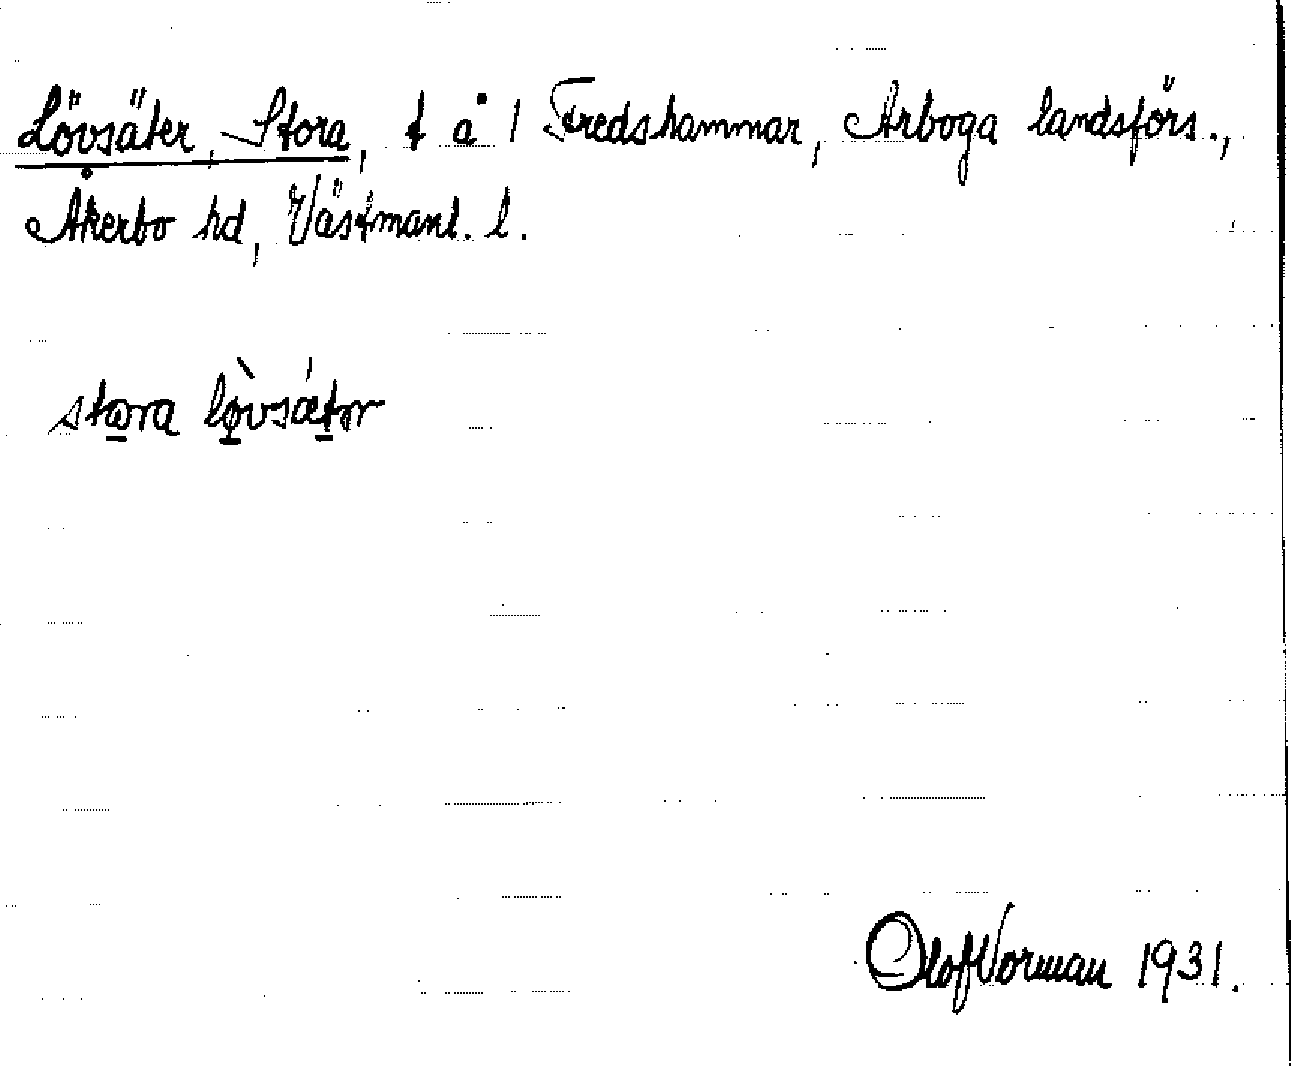 Lövsäter, Stora, t å 1 Fredshammar, Arboga landsförs.,
Åkerbo hd, Västmanl. l.
stora lø̀vsǽtər
Olof Vorman 1931.